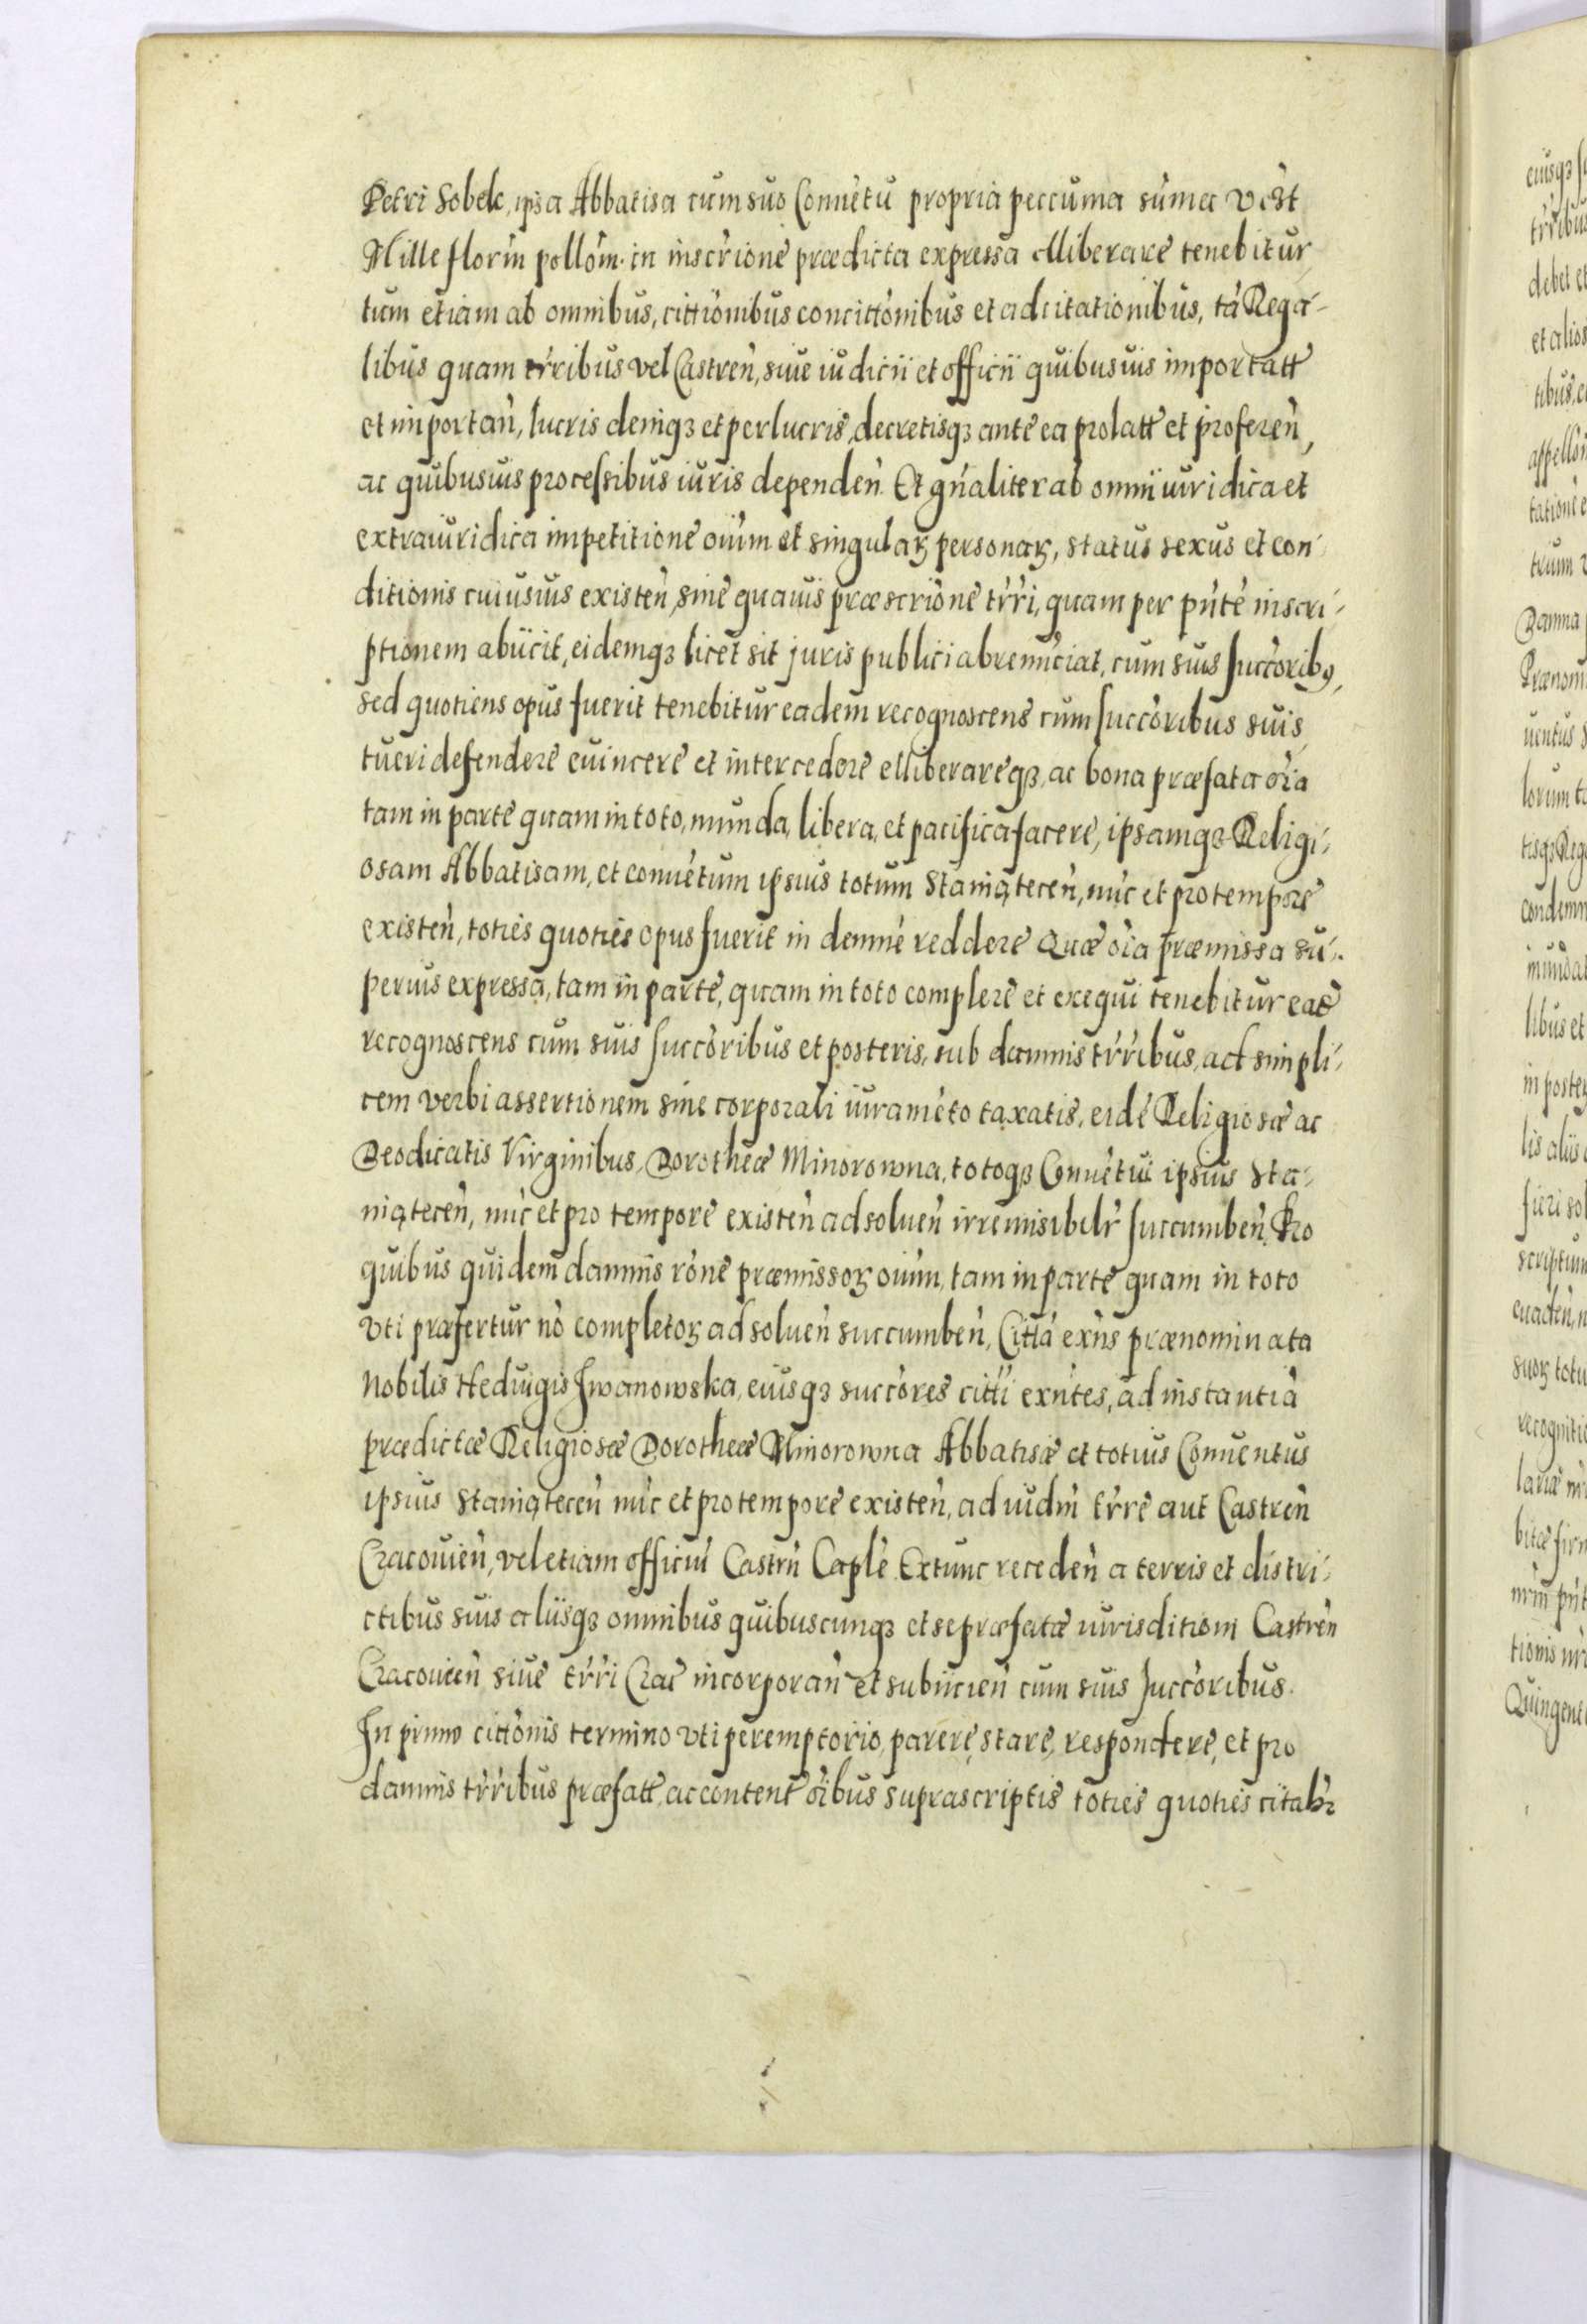 Petri Sobek, ipsa Abbatisa cum suo Conuētu propria peccuma sūmā
Mille florīn pollōm. in inscrīone prædicta expressa elliberare tenebitur
tum etiam ab omnibus, cittionibus concittonibus et adcitationibus, tā Rega-
libus quam trribus vel Castreñ, siue iudicii et officii quibusuis importatt
et importañ, lucris deniqȝ et perlucris, decretisqȝ ante ea prolatt et profereñ,
ac quibusuis processibus iuris dependeñ. Et gñaliter ab omni iuridica et
extraiuridica impetitione oium et singulaꝝ personaꝝ, status sexus et con-
ditionis cuiusuis existeñ, sine quauis præscrione trri, quam per pñte inscri-
ptionem abiicit, eidemqȝ licet sit juris publici abrenuciat, cum suis succoribꝰ,
sed quotiens opus fuerit tenebitur eadem recognoscens cum succoribus suis
tueri defendere euincere et intercedere elliberareqȝ, ac bona præfata oia
tam in parte quam in toto, munda, libera, et pacifica facere, ipsamqȝ Religi-
osam Abbatisam, et conuētum ipsius totum Staniąteceñ, nūc et pro tempore
existeñ, toties quoties opus fuerit in demne reddere Quæ oia præmissa su-
perius expressa, tam in parte, quam in toto complere et exequi tenebitur ead
recognoscens cum suis succoribus et posteris, sub damnis trribus, act simpli-
cem verbi assertionem sine corporali iuramēto taxatis, eidē Religiosæ ac
Deodicatis Virginibus, Dorotheæ Minorowna, totoqȝ Conuētui ipsius Sta-
niąteceñ, nūc et pro tempore existeñ adsolueñ irremisibilr succumbeñ. Pro
quibus quidem damnis rone præmissoꝝ oium, tam in parte quam in toto
vti præfertur nō completoꝝ adsolueñ succumbeñ, Citta exñs prænominata
Nobilis Heduigis Jwanowska, eiusqȝ succores citti exñtes, ad instantiā
prædictæ Religiosæ Dorotheæ Minorowna Abbatisæ et totius Conuentus
ipsius Staniąteceñ nūc et pro tempore existeñ, ad iudm trre aut Castreñ
Cracouieñ, vel etiam officiū Castrñ Caple. Extunc recedeñ a terris et distri-
ctibus suis aliisqȝ omnibus quibuscunqȝ et se præfatæ iurisditioni Castreñ
Cracouieñ siue trri Crac incorporañ et subiicieñ cum suis succoribus.
In primo cittonis termino vti peremptorio, parere, stare, respondere, et pro
damnis trribus præfatt, ac content oibus suprascriptis toties quoties citabr